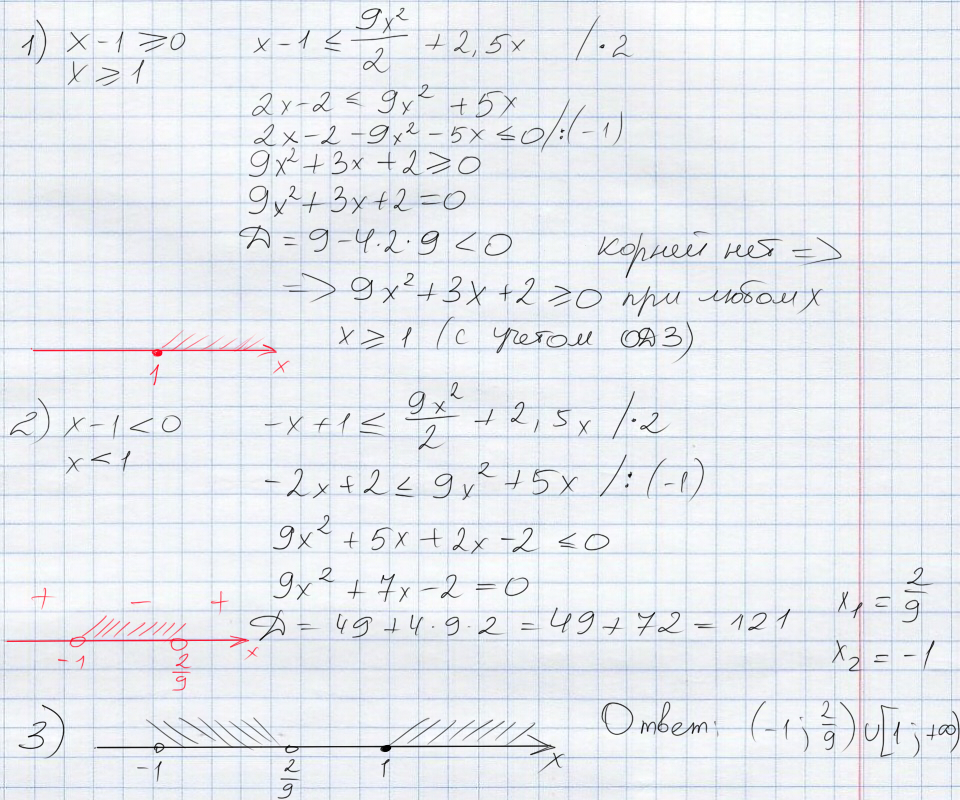 1) x-1 ≥ 0 x-1 ≤ 9x²/2 + 2,5x /·2
x ≥ 1
2x-2 ≤ 9x² + 5x
2x-2-9x²-5x ≤ 0 /:(-1)
9x²+3x+2 ≥ 0
9x²+3x+2=0
Д = 9-4·2·9 < 0 корней нет =>
=> 9x²+3x+2 ≥ 0 при любом x
x ≥ 1 (с учетом ОДЗ)
1 x
2) x-1 < 0 -x+1 ≤ 9x²/2 + 2,5x /·2
x < 1
-2x+2 ≤ 9x²+5x /:(-1)
9x²+5x+2x-2 ≤ 0
9x²+7x-2=0
+ - +
Д = 49+4·9·2 = 49+72 = 121 x₁ = 2/9
-1 2/9 x
x₂ = -1
3) Ответ: (-1; 2/9) ∪ [1; +∞)
-1 2/9 1 x